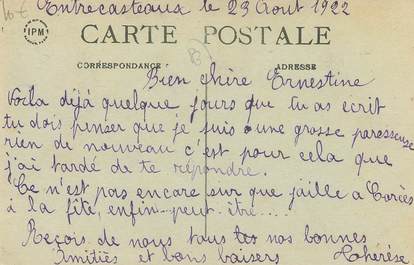 10€
Entrecasteaux le 23 Aout 1922
IPM
CARTE POSTALE
B
CORRESPONDANCE
ADRESSE
Bien chère Ernestine
Voila déjà quelque jours que tu as ecrit
tu dois penser que je suis une grosse paresseuse
rien de nouveau c'est pour cela que
j'ai tardé de te répondre.
Ce n'est pas encare sur que jaille a Carcès
à la fête, enfin peut être....
Reçois de nous tous tes nos bonnes
Amitiés et bons baisers Thérèse